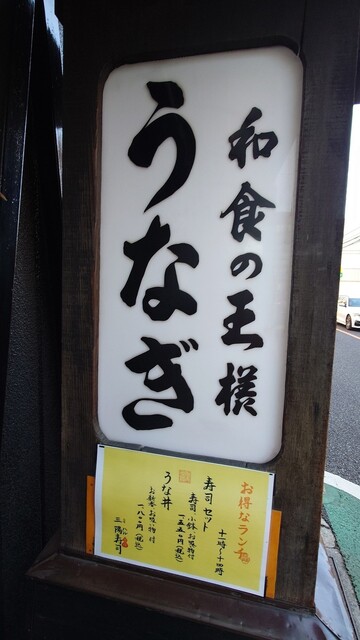 和食の王様
うなぎ
お得なランチ
十一時〜十四時
寿司セット
寿司 小鉢 お吸物付
一五五〇円(税込)
うな丼
お新香 お吸物付
一八〇〇円(税込)
三陽寿司